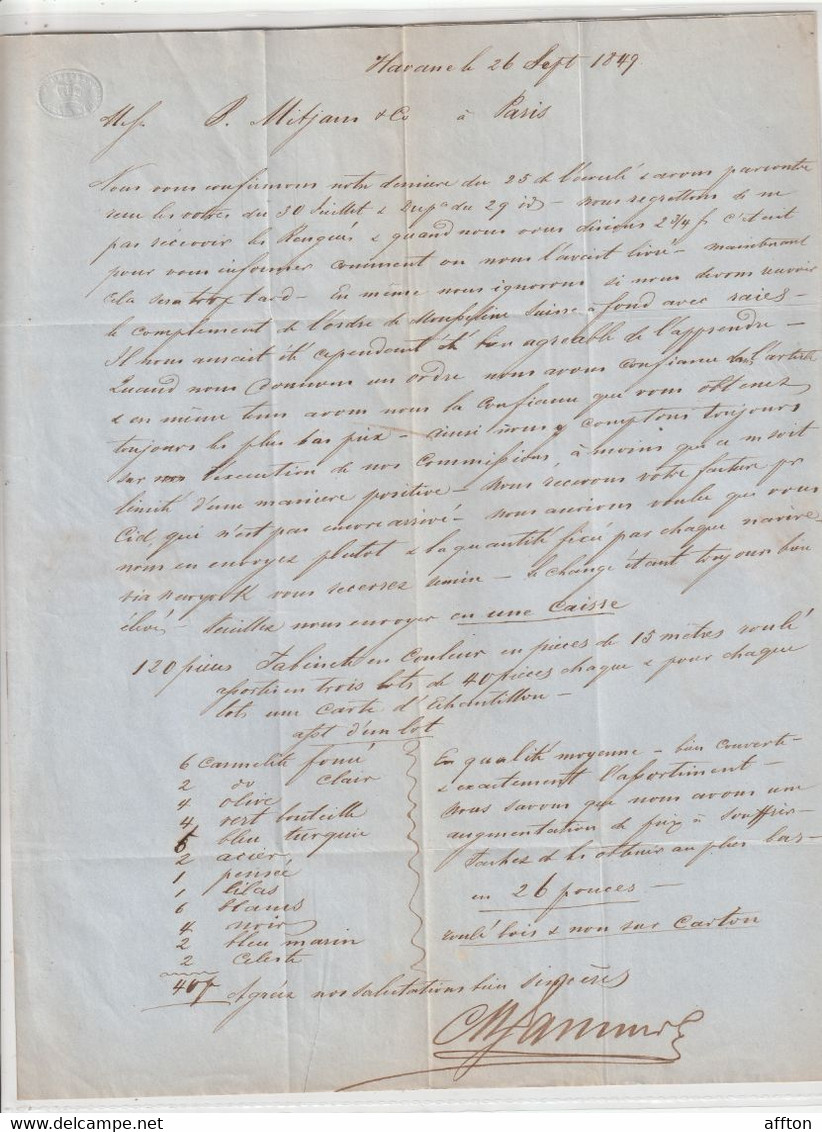 Havane le 26 Sept 1849
P. Mitjans & Co à Paris
Nous vous confirmons notre derniere du 25 de l'écoulé & avons par contre
recu les votres du 30 Juillet & du 29 - nous regrettons de ne
pas recevoir les & quand nous vous disions 2 3/4 f c'etait
pour vous informer comment on nous l'avait livré - maintenant
cela sera trop tard - En même nous ignorons si nous devons recevoir
le complement de l'ordre de Mousseline Suisse à fond avec raies -
Il nous aurait été cependent été bien agreable de l'apprendre -
Quand nous donnons un ordre nous avons confiance l'article
& en même tems avons nous la confiance que vous obtenez
toujours les plus bas prix - ainsi nous y comptons toujours
sur l'execution de nos Commissions, à moins que ce ne soit
limité d'une maniere positive - Nous recevons votre facture pr
Cid, qui n'est pas encore arrivé - nous aurions voulu que vous
nous en envoyez plutot & la quantité fixée par chaque navire -
via Newyork vous recevrez - le change étant toujours bien
élevé - Veuillez nous envoyer en une Caisse
120 pieces Tabinet en Couleur en pieces de 15 mètres roulé
assortie en trois lots de 40 pieces chaque & pour chaque
lots une Carte d'Echantillon -
asst d'un lot
6 Carmelite foncé
2 do clair
4 olive
4 vert bouteille
6 bleu turquie
2 acier
1 pensée
1 lilas
6 blancs
4 noir
2 bleu marin
2 Celeste
40 p
En qualité moyenne - bien couverte -
& exactement l'assortiment -
Nous savons que nous avons une
augmentation de prix à souffrir -
Tachez de les obtenir au plus bas -
en 26 pouces -
roulé bois & non sur Carton
Agréez nos salutations bien sincères
affton